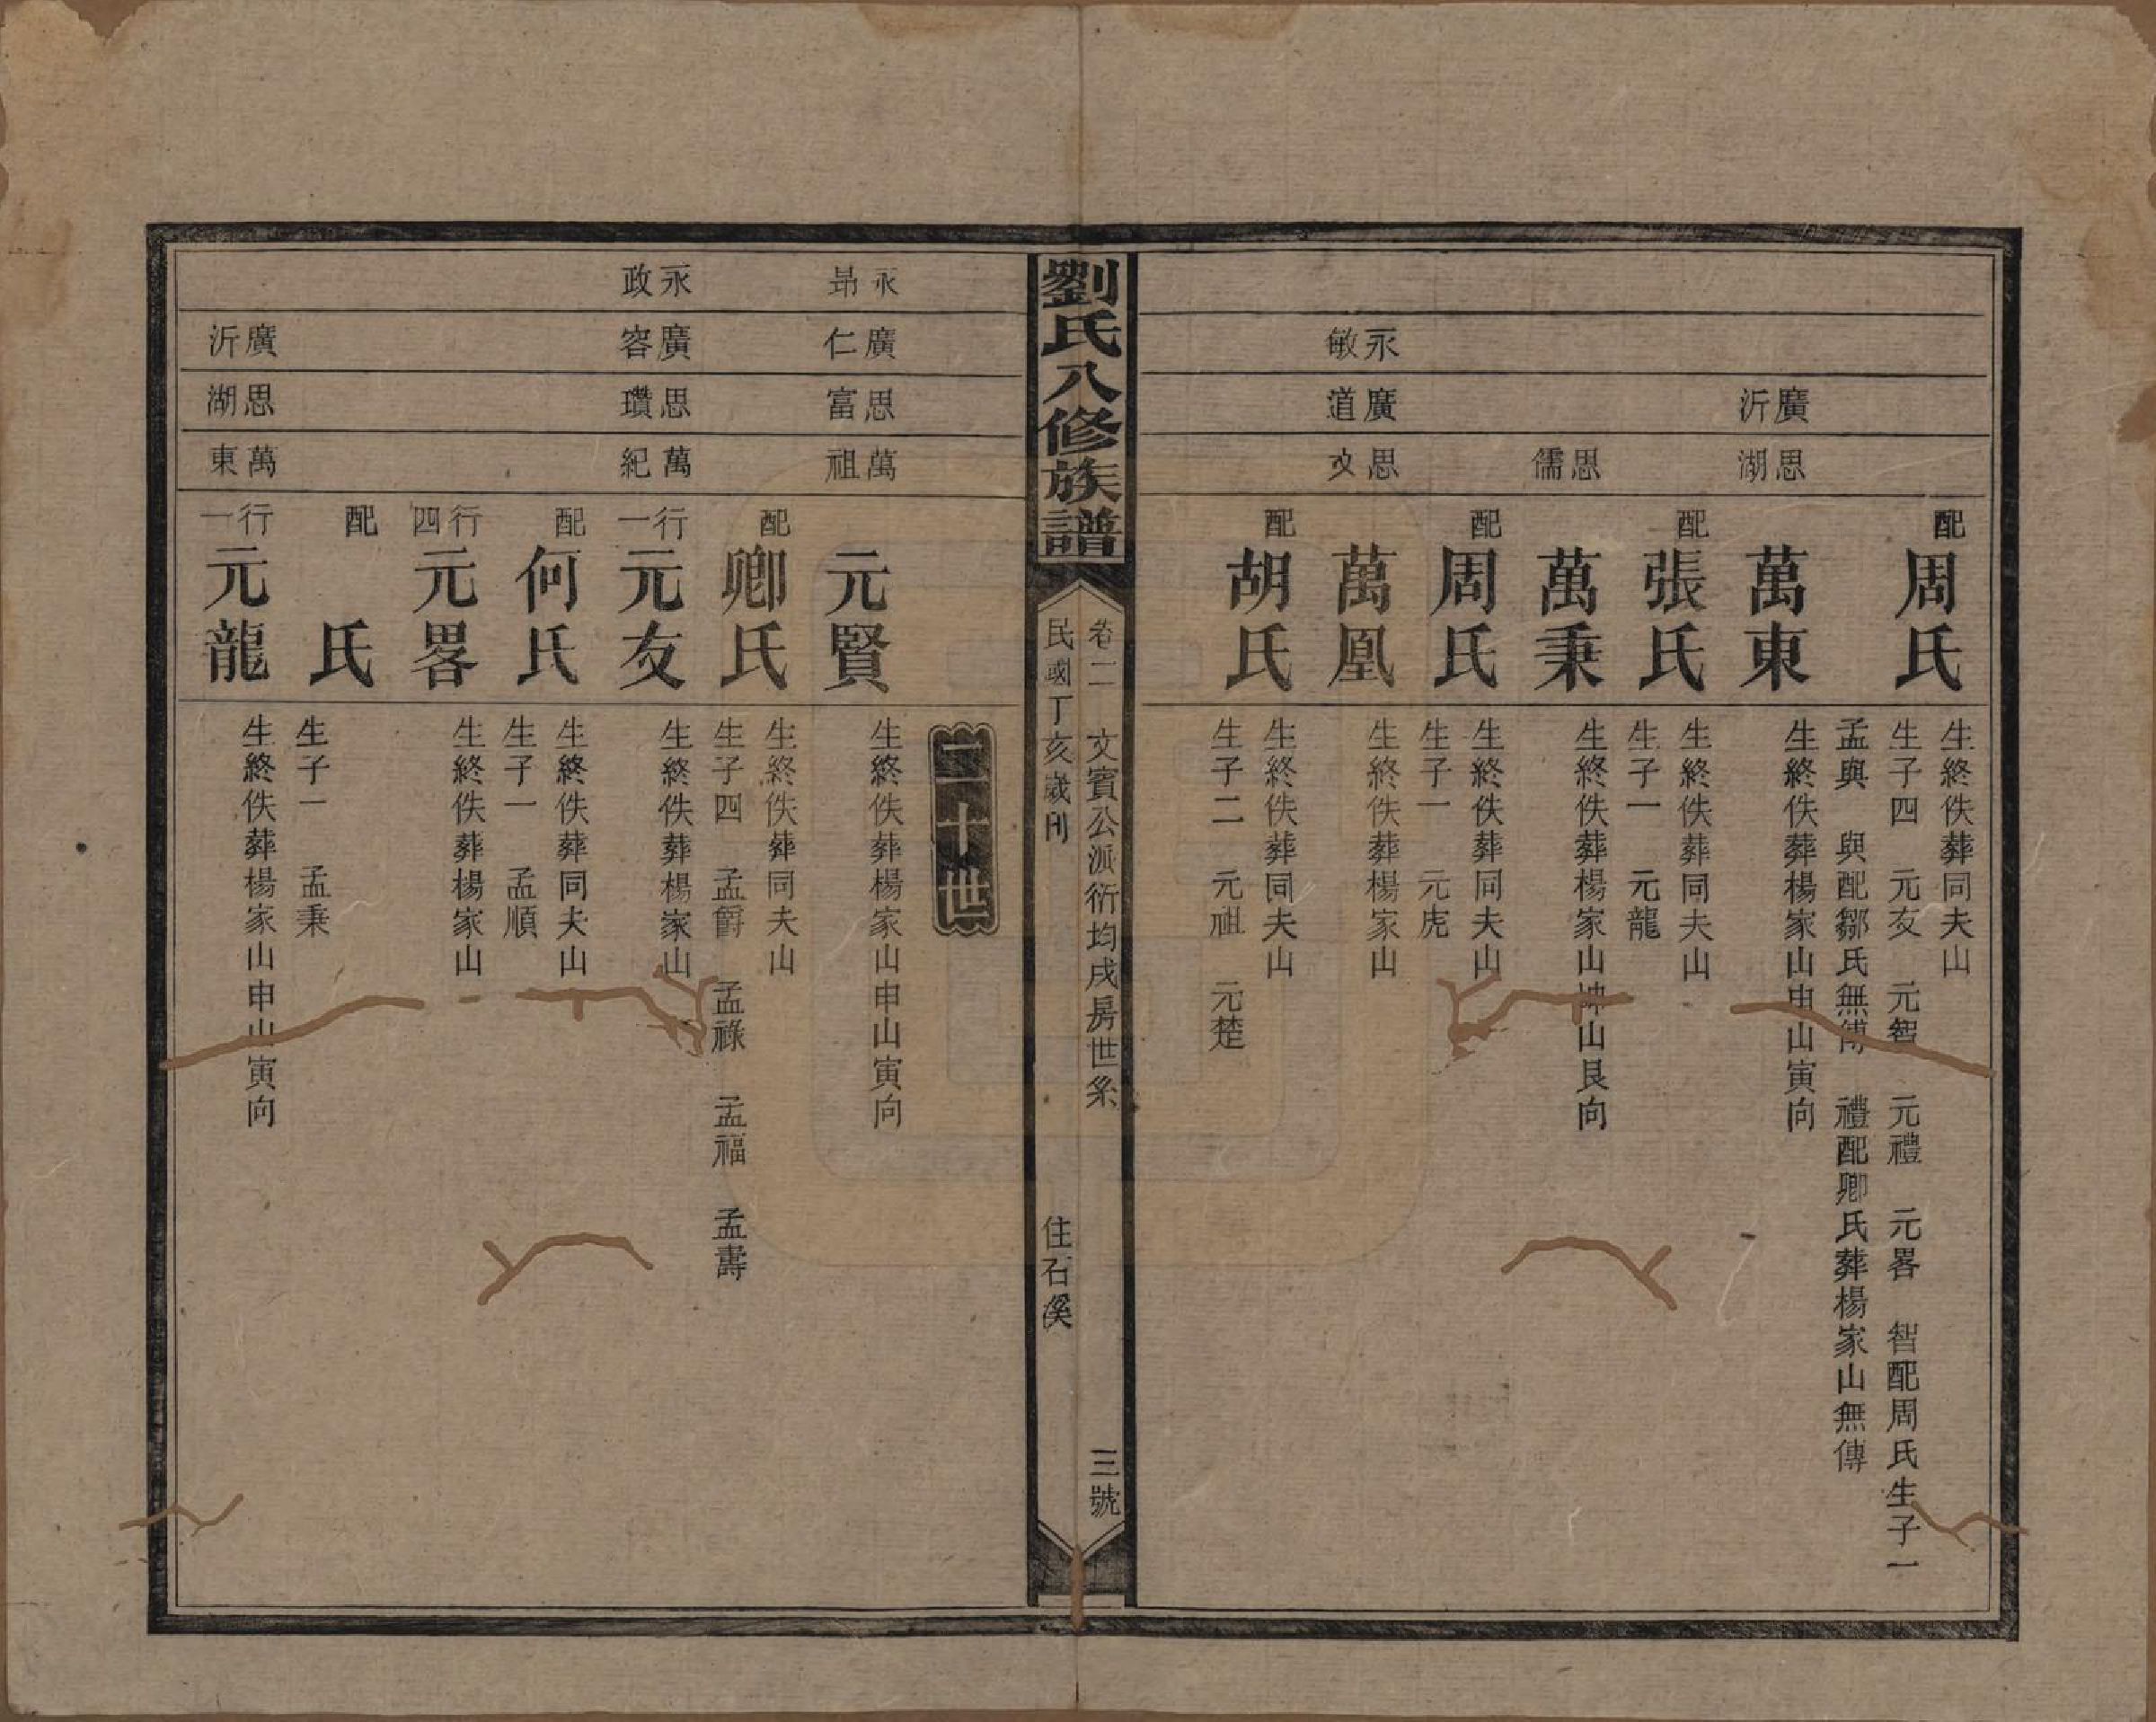 配
周氏
生終佚葬同夫山
生子四　元友　元智　元禮　元畧　智配周氏生子一
孟與　與配鄒氏無傳　禮配卿氏葬楊家山無傳
廣沂
思湖
萬東
生終佚葬楊家山申山寅向
配
張氏
生終佚葬同夫山
生子一　元龍
思儒
萬秉
生終佚葬楊家山坤山艮向
配
周氏
生終佚葬同夫山
生子一　元虎
永敏
廣道
思文
萬凰
生終佚葬楊家山
配
胡氏
生終佚葬同夫山
生子二　元祖　元楚
劉氏八修族譜
卷二　文賓公派衍均成房世系　三號
民國丁亥歲刊　住石溪
二十世
永昂
廣仁
思富
萬祖
元賢
生終佚葬楊家山申山寅向
配
卿氏
生終佚葬同夫山
生子四　孟爵　孟祿　孟福　孟壽
永政
廣容
思瓚
萬紀
行一
元友
生終佚葬楊家山
配
何氏
生終佚葬同夫山
生子一　孟順
行四
元畧
生終佚葬楊家山
配
氏
生子一　孟秉
廣沂
思湖
萬東
行一
元龍
生終佚葬楊家山申山寅向